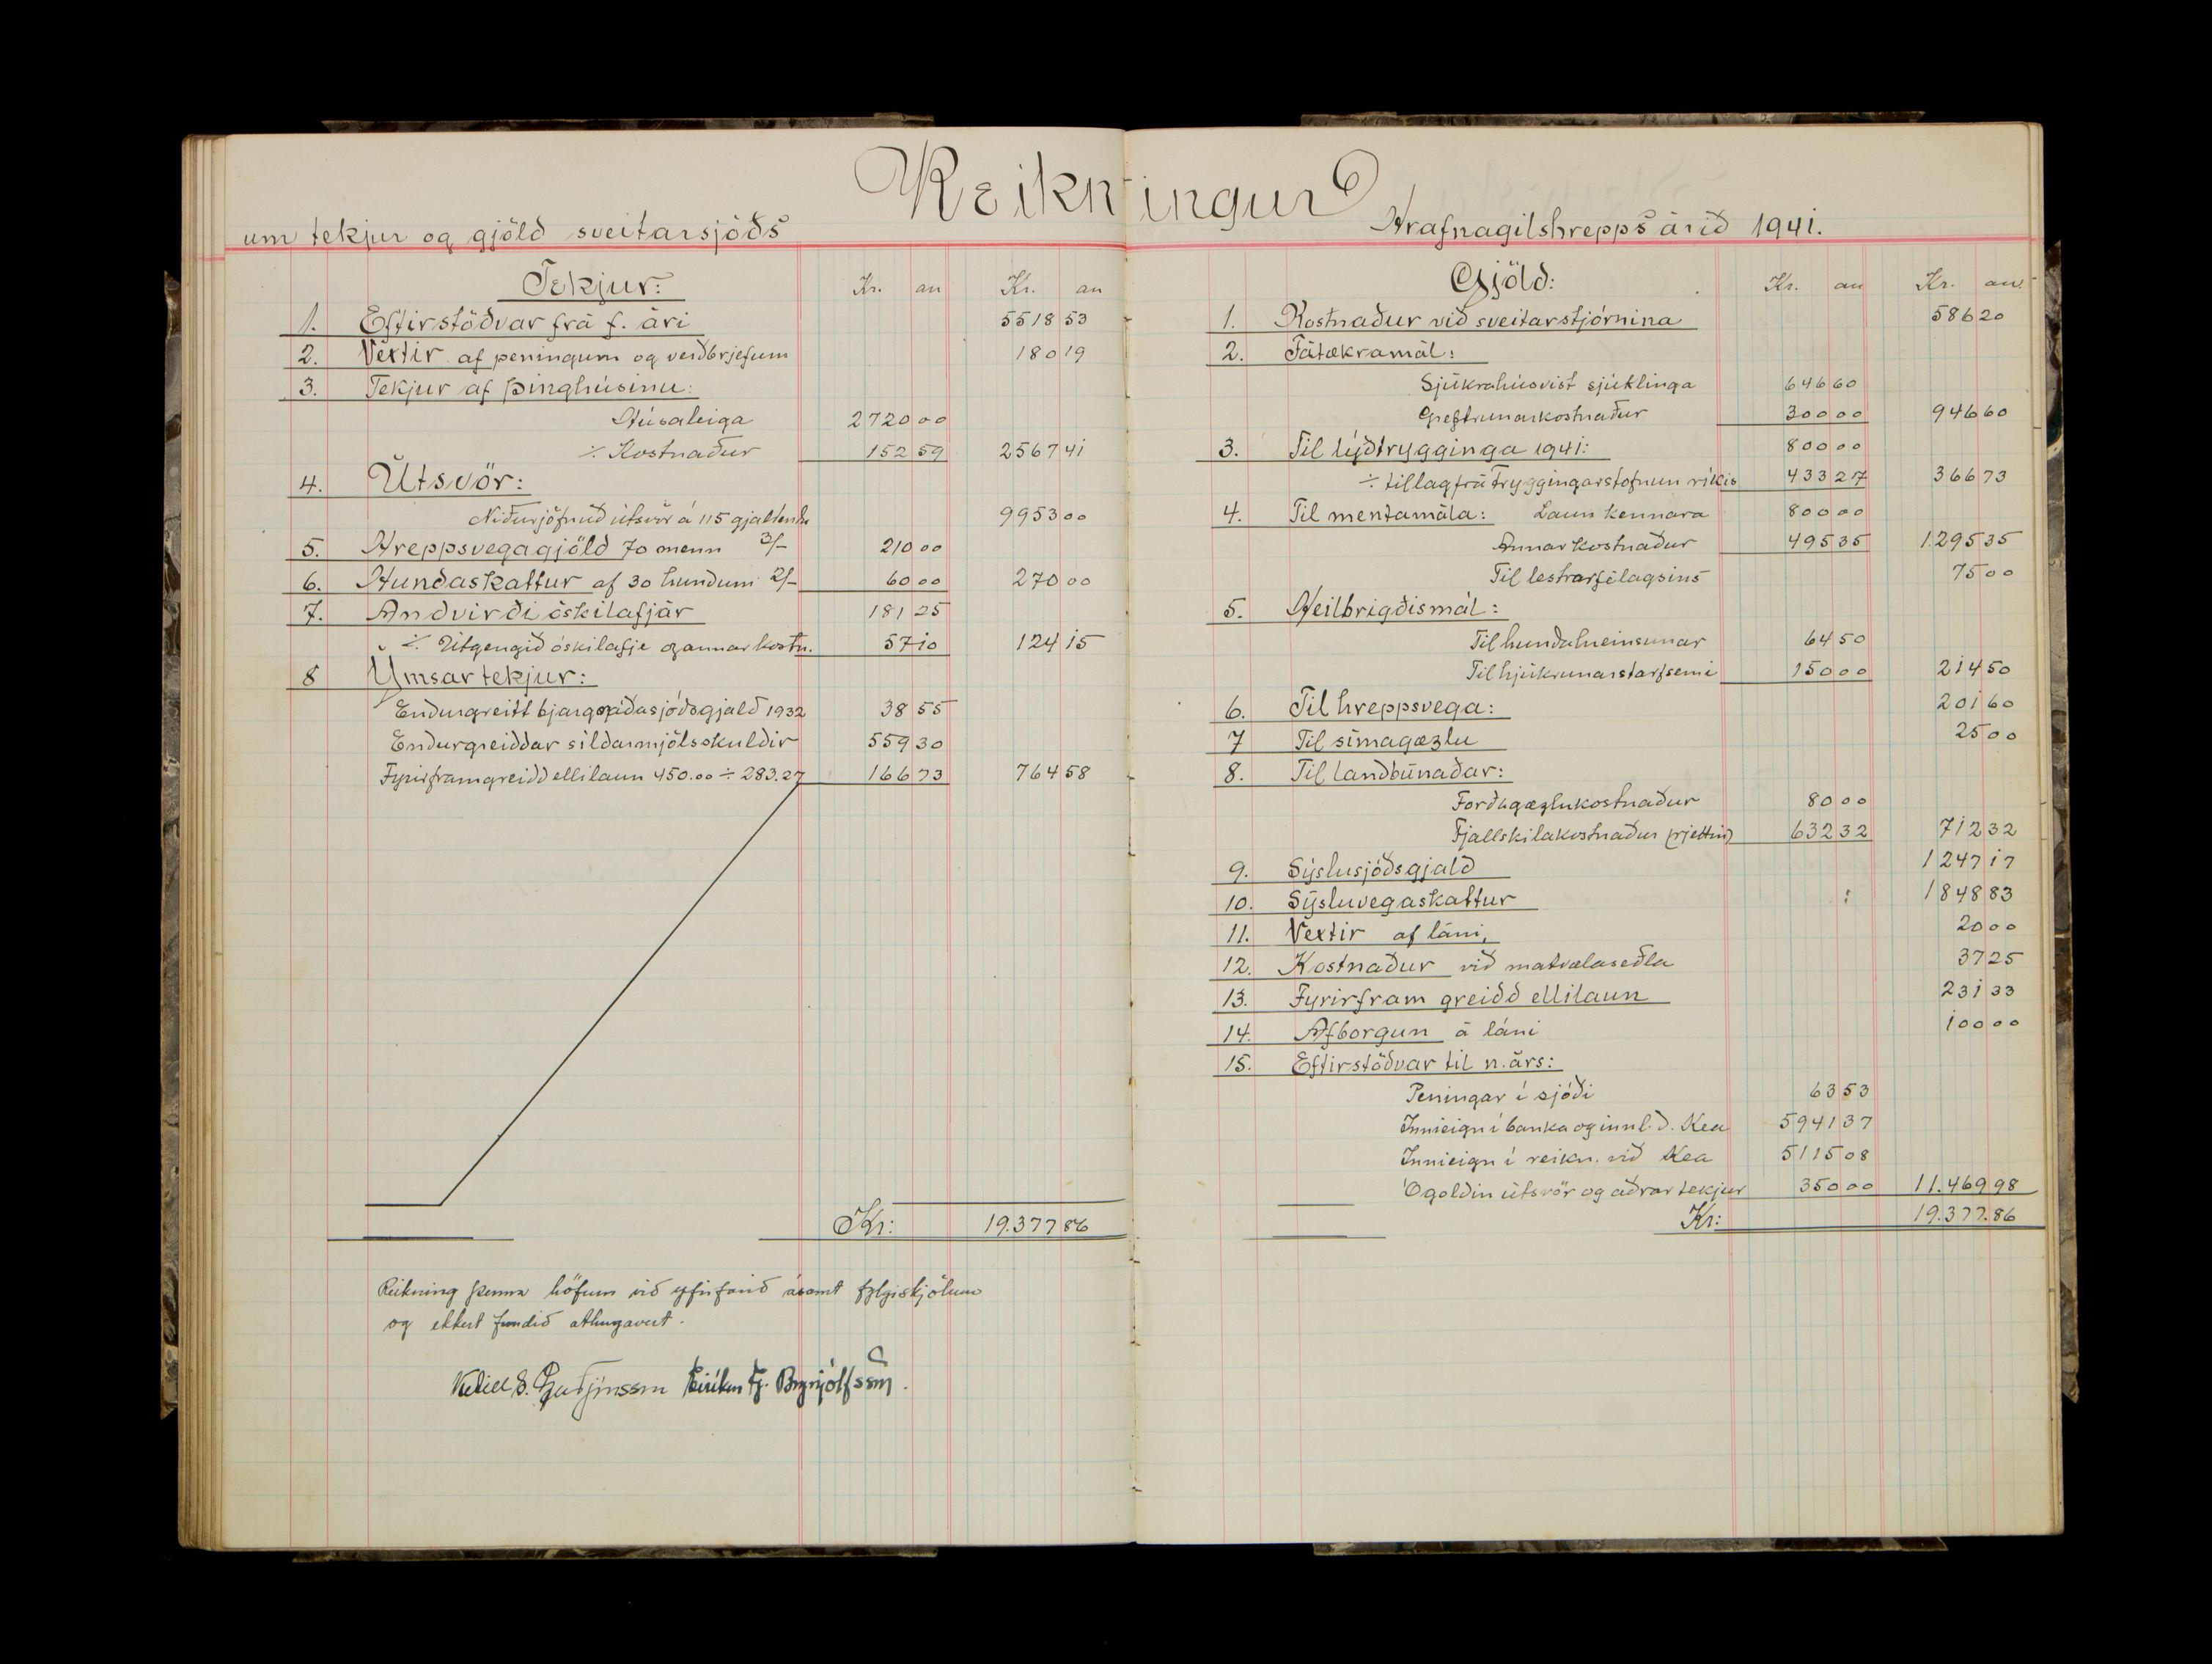 Reikningur
um tekjur og gjöld sveitarsjóðs Hrafnagilshrepps árið 1941.
Tekjur: Kr. au Kr. au
1. Eftirstöðvar frá f. ári 5518 53
2. Vextir af peningum og verðbrjefum 180 19
3. Tekjur af þinghúsinu:
Húsaleiga 2720 00
÷ Kostnaður 152 59 2567 41
4. Útsvör:
Niðurjöfnuð útsvör á 115 gjaldendur 9953 00
5. Hreppsvegagjöld 70 menn 3/- 210 00
6. Hundaskattur af 30 hundum 2/- 60 00 270 00
7. Andvirði óskilafjár 181 25
÷ Útgengið óskilafje og annar kostn. 57 10 124 15
8 Ýmsar tekjur:
Endurgreitt bjargráðasjóðsgjald 1932 38 55
Endurgreiddar síldarmjölsskuldir 559 30
Fyrirframgreidd ellilaun 450.00 ÷ 283.27 166 73 764 58
Kr: 19.377 86
Reikning þenna höfum við yfirfarið ásamt fylgiskjölum
og ekkert fundið athugavert.
Ketill S. Guðjónsson Eiríkur G. Brynjólfsson.
Gjöld: Kr. au Kr. au.
1. Kostnaður við sveitarstjórnina 586 20
2. Fátækramál:
Sjúkrahúsvist sjúklinga 646 60
Greftrunarkostnaður 300 00 946 60
3. Til lýðtrygginga 1941: 800 00
÷ tillag frá Tryggingarstofnun ríkis 433 27 366 73
4. Til mentamála: Laun kennara 800 00
Annar kostnaður 495 35 1.295 35
Til lestrarfélagsins 75 00
5. Heilbrigðismál:
Til hundahreinsunar 64 50
Til hjúkrunarstarfsemi 150 00 214 50
6. Til hreppsvega: 201 60
7 Til símagæzlu 25 00
8. Til landbúnaðar:
Forðagæzlukostnaður 80 00
Fjallskilakostnaður (rjettir) 632 32 712 32
9. Sýslusjóðsgjald 1247 17
10. Sýsluvegaskattur 1848 83
11. Vextir af láni, 20 00
12. Kostnaður við matvælaseðla 37 25
13. Fyrirfram greidd ellilaun 231 33
14. Afborgun á láni 100 00
15. Eftirstöðvar til n. árs:
Peningar í sjóði 63 53
Innieign í banka og innl. d. Kea 5941 37
Innieign í reikn. við Kea 5115 08
Ógoldin útsvör og aðrar tekjur 350 00 11.469 98
Kr: 19.377.86